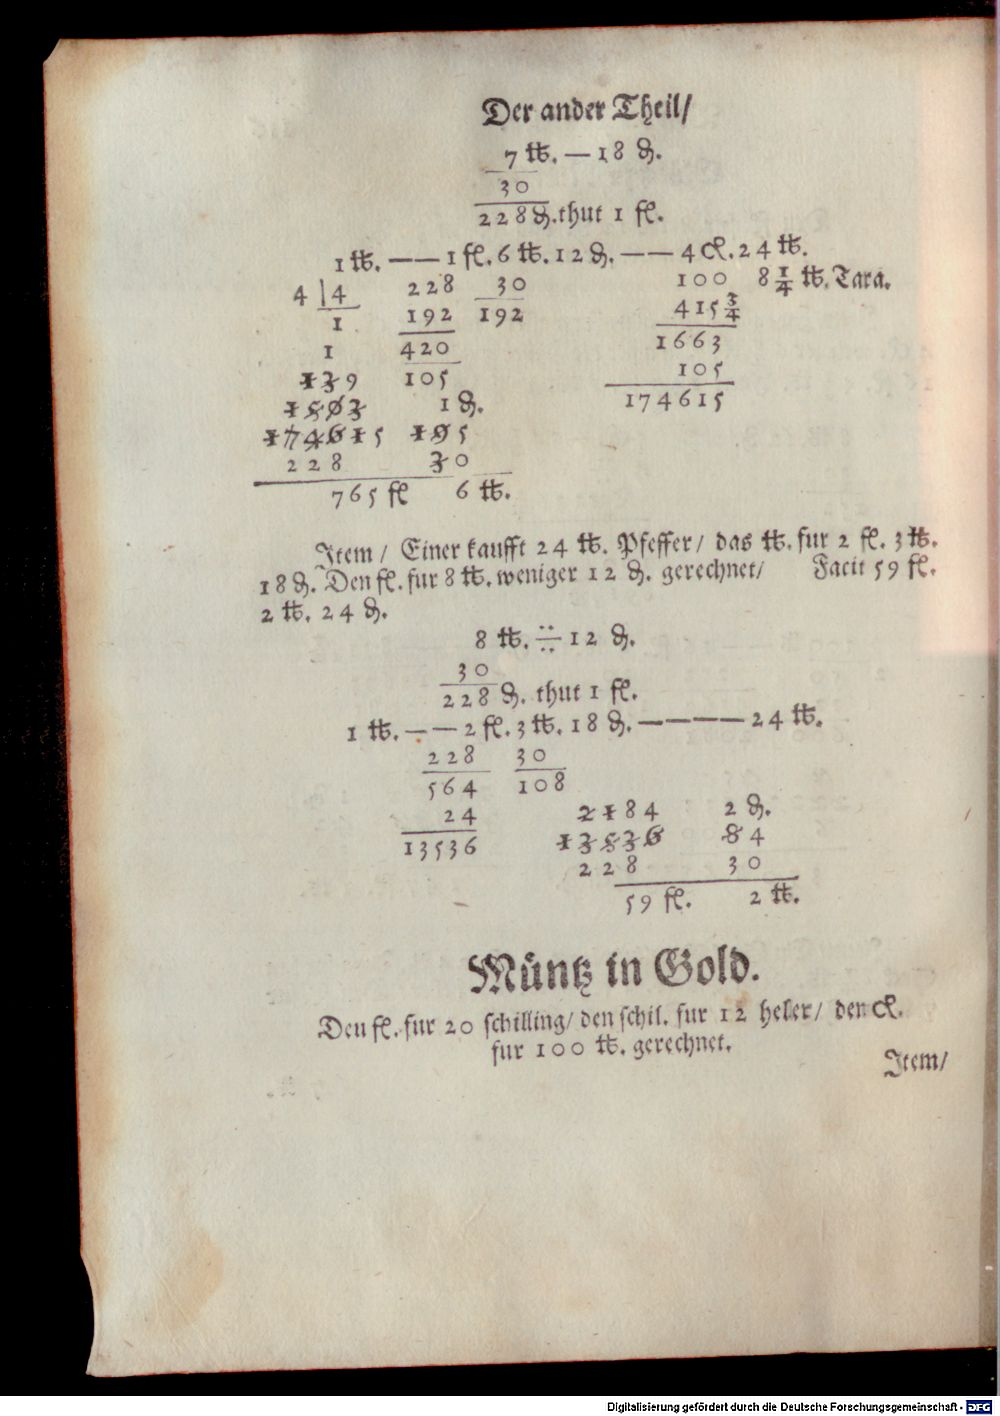 Der ander Theil/
7 ℔. — 18 ₰.
30
228 ₰. thut 1 fl.
1 ℔. — — 1 fl. 6 ℔. 12 ₰. — — 4 cl. 24 ℔.
4 | 4 228 30 100 8 1/4 ℔. Tara.
1 192 192 415 3/4
1 420 1663
139 105 105
1503 1 ₰. 174615
174615 195
228 30
765 fl 6 ℔.
Item / Einer kaufft 24 ℔. Pfeffer / das ℔. fur 2 fl. 3 ℔.
18 ₰. Den fl. fur 8 ℔. weniger 12 ₰. gerechnet/ Facit 59 fl.
2 ℔. 24 ₰.
8 ℔. ÷ 12 ₰.
30
228 ₰. thut 1 fl.
1 ℔. — — 2 fl. 3 ℔. 18 ₰. — — — — 24 ℔.
228 30
564 108
24 2184 2 ₰.
13536 13536 84
228 30
59 fl. 2 ℔.
Müntz in Gold.
Den fl. fur 20 schilling/ den schil. fur 12 heler/ den cl.
fur 100 ℔. gerechnet.
Item/
Digitalisierung gefördert durch die Deutsche Forschungsgemeinschaft - DFG